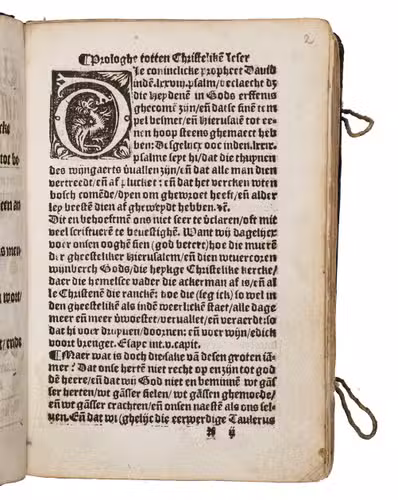 2
¶Prologhe totten Christelikē leser
DIe coninclicke propheet David
indē.lxxviij.psalm/verclaecht dz
die Heydenē in Gods erffenis
ghecomē zijn/eñ dat se sinē tem
pel besmet/eñ Hierusalē tot ee-
nen hoop steens ghemaect heb
ben: Desgelijcx ooc inden.lxxix.
psalme seyt hi/dat die thuynen
des wijngaerts vvallen zijn/eñ dat alle man dien
vertreedt/eñ af pluckct: eñ dat het vercken wten
bosch comēde/dyen om ghewroet heeft/eñ alder
ley beestē dien af gheweydt hebben.
Dit en behoeftmē ons niet seer te vclaren/oft met
veel scriftuerē te bevestighē. Want wij dagelijcx
voer onsen ooghē sien (god betert) hoe die muerē
der gheestelijcker Hierusalem/eñ dien wtvercoren
wijnberch Gods/die heylige Christelike kercke/
daer die hemelsce vader die ackerman af is/eñ al
le Christenē die ranckē: hoe die (seg ick) so wel in
den gheestelikē als indē weerlickē staet/alle dage
meer eñ meer vwoestet/vervallet/eñ veraerdt: so
dat hi voer druyven/doornen: eñ voer wijn/edick
voort brenget. Esaye int.v.capit.
¶Maer wat is doch die sake vā desen groten iā-
mer? Dat onse hertē niet recht op en zijn tot god
dē heere/eñ dat wij God niet en beminnē wt gās
ser herten/wt gāsser sielen/wt gāssen ghemoede/
eñ wt gāsser crachten/eñ onsen naestē als ons sel-
ven. Eñ dat wi (ghelijc die eerwerdige Taulerus
ij